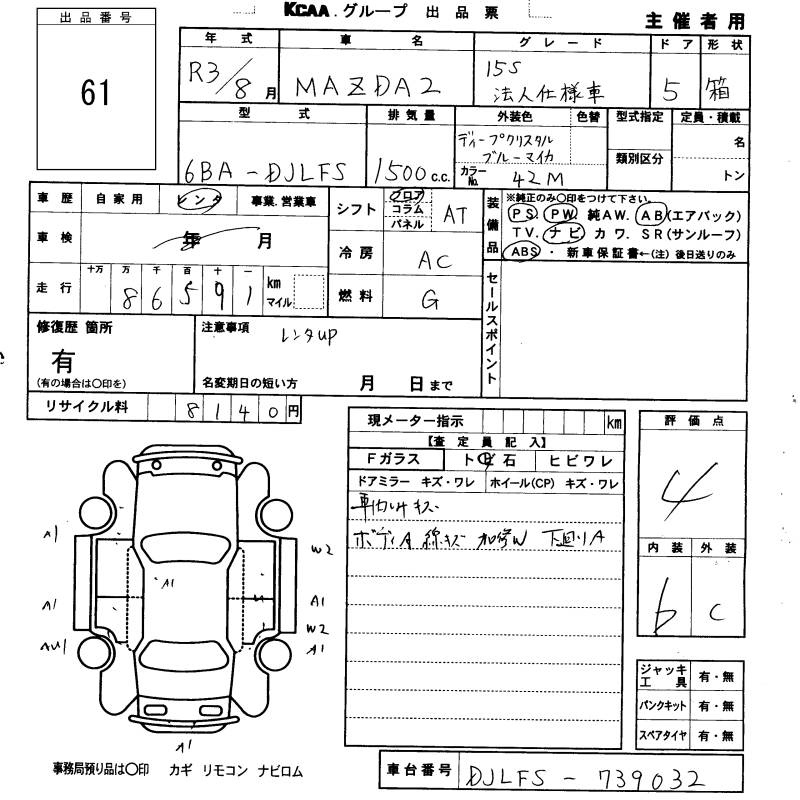 KCAA.グループ 出品票
主催者用
出品番号
61
年式 車名 グレード ドア 形状
R3/8月 MAZDA2 15S 法人仕様車 5 箱
型式 排気量 外装色 色替 型式指定 定員・積載
6BA-DJLFS 1500c.c. ディープクリスタル 名
ブルーマイカ
カラーNo. 42M 類別区分 トン
車歴 自家用 レンタ 事業.営業車
車検 年 月
走行 十万 万 千 百 十 一
86591 km マイル
シフト フロア コラム パネル AT
冷房 AC
燃料 G
装備品 ※純正のみ〇印をつけて下さい。
PS. PW. 純AW. AB(エアバック)
TV. ナビ カワ. SR(サンルーフ)
ABS ・ 新車保証書←(注)後日送りのみ
セールスポイント
修復歴 箇所
有
(有の場合は〇印を)
注意事項 レンタup
名変期日の短い方 月 日まで
リサイクル料 8140円
現メーター指示 km
【査定員記入】
Fガラス トビ石 ヒビワレ
ドアミラー キズ・ワレ ホイール(CP) キズ・ワレ
車内ハゲ キズ
ボディA 線キズ 加修W 下廻りA
評価点
4
内装 外装
b C
A1
W2
A1
A1
A1
W2
AU1
A1
A1
ジャッキ工具 有・無
パンクキット 有・無
スペアタイヤ 有・無
事務局預り品は〇印 カギ リモコン ナビロム
車台番号 DJLFS-739032